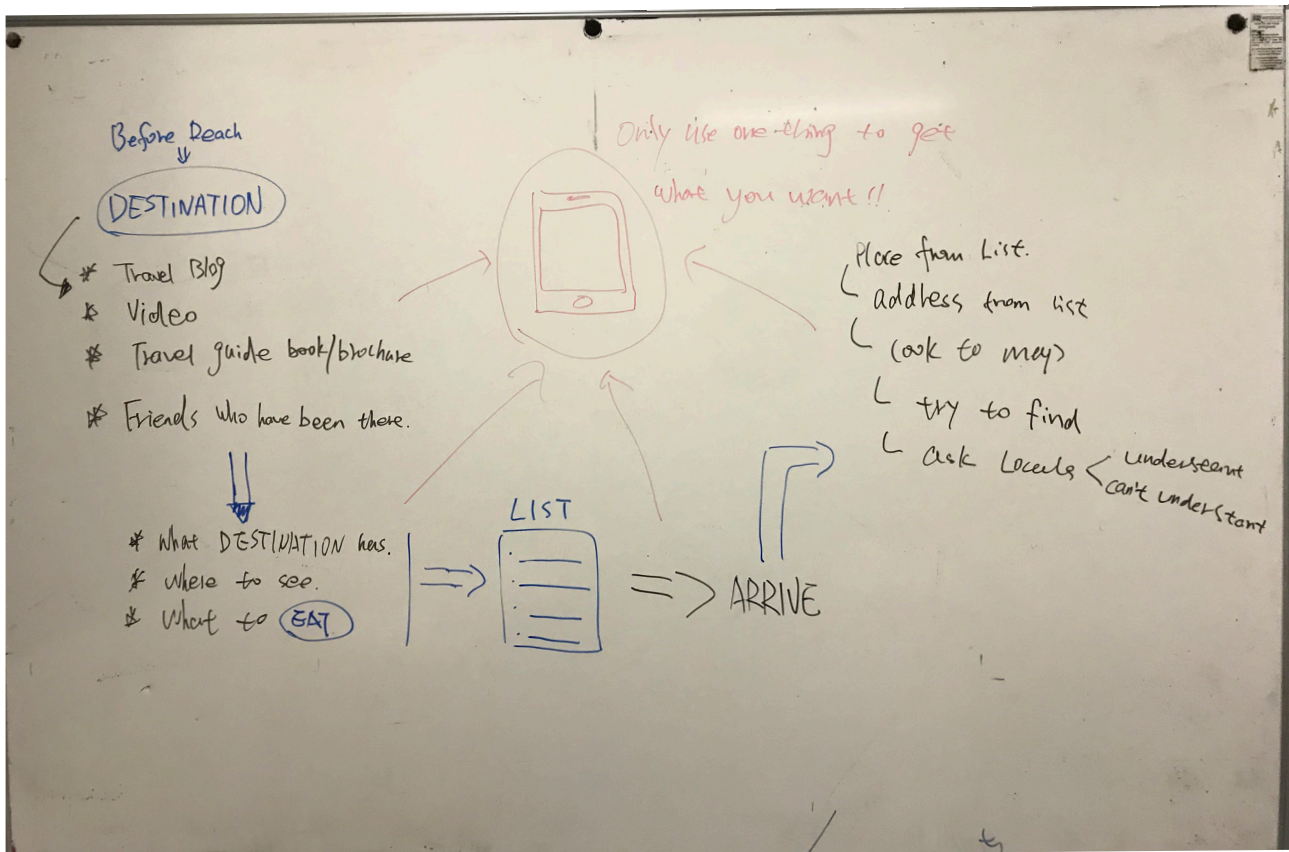 Before Reach
DESTINATION
* Travel Blog
* Video
* Travel guide book/brochure
* Friends who have been there.
* What DESTINATION has.
* Where to see.
* What to EAT
LIST
ARRIVE
Only use one thing to get
what you want!!
Place from List.
address from list
look to map
try to find
ask Locals
understant
can't understant